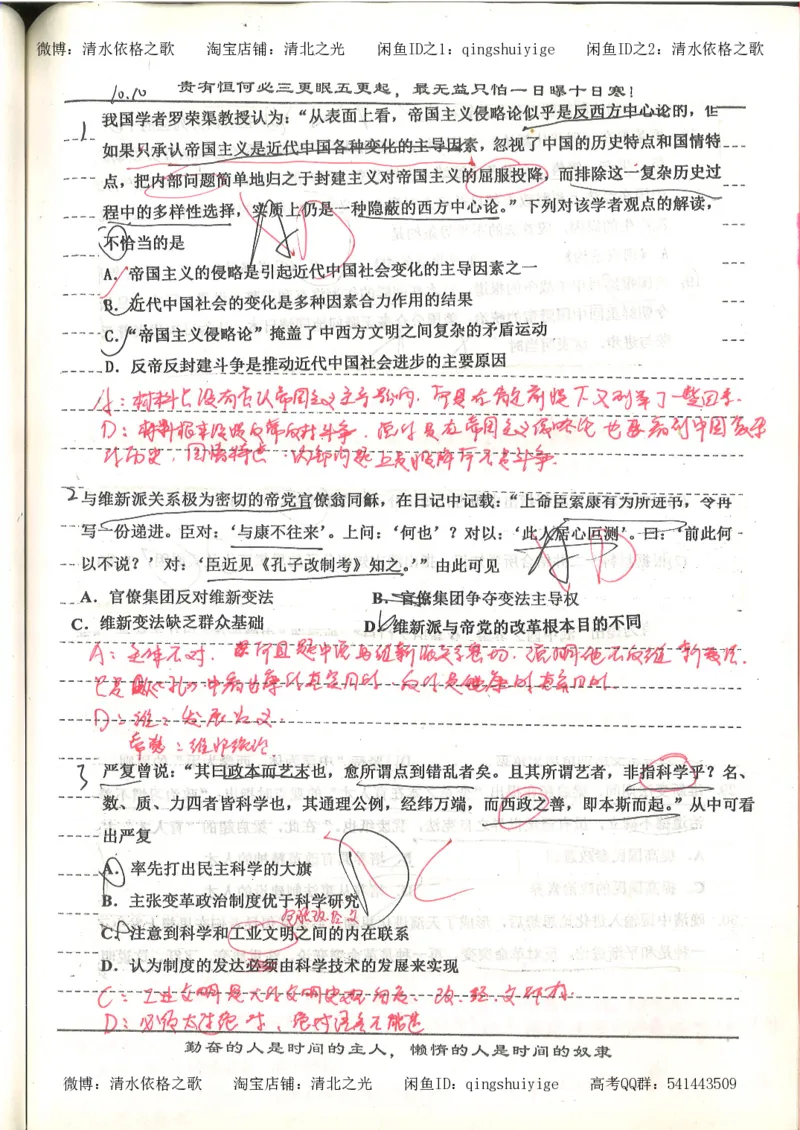 微博：清水依格之歌 淘宝店铺：清北之光 闲鱼ID之1：qingshuiyige 闲鱼ID之2：清水依格之歌
10.10 贵有恒何必三更眠五更起，最无益只怕一日曝十日寒！
1 我国学者罗荣渠教授认为：“从表面上看，帝国主义侵略论似乎是反西方中心论的，但
如果只承认帝国主义是近代中国各种变化的主导因素，忽视了中国的历史特点和国情特
点，把内部问题简单地归之于封建主义对帝国主义的屈服投降，而排除这一复杂历史过
程中的多样性选择，实质上仍是一种隐蔽的西方中心论。”下列对该学者观点的解读，
不恰当的是 A D
A．帝国主义的侵略是引起近代中国社会变化的主导因素之一
B．近代中国社会的变化是多种因素合力作用的结果
C．“帝国主义侵略论”掩盖了中西方文明之间复杂的矛盾运动
D．反帝反封建斗争是推动近代中国社会进步的主要原因
A：材料上没有否认帝国主义主导影响，而是在肯定前提下又列举了一些因素.
D：材料根本没提反帝反封斗争，
2 与维新派关系极为密切的帝党官僚翁同龢，在日记中记载：“上命臣索康有为所进书，令再
写一份递进。臣对：‘与康不往来’。上问：‘何也’？对以：‘此人居心叵测’。曰：‘前此何
以不说？’对：‘臣近见《孔子改制考》知之。”由此可见 A D
A．官僚集团反对维新变法 B．官僚集团争夺变法主导权
C．维新变法缺乏群众基础 D．维新派与帝党的改革根本目的不同
A：主体不对，
D：维：发展资本主义
帝党：维护统治
3 严复曾说：“其曰政本而艺末也，愈所谓点到错乱者矣。且其所谓艺者，非指科学乎？名、
数、质、力四者皆科学也，其通理公例，经纬万端，而西政之善，即本斯而起。”从中可看
出严复 D C
A．率先打出民主科学的大旗
B．主张变革政治制度优于科学研究
C．注意到科学和工业文明之间的内在联系
D．认为制度的发达必须由科学技术的发展来实现
C：工业文明是大的文明史观角度：政、经、文都有
D：必须太过绝对，
勤奋的人是时间的主人，懒惰的人是时间的奴隶
微博：清水依格之歌 淘宝店铺：清北之光 闲鱼ID：qingshuiyige 高考QQ群：541443509